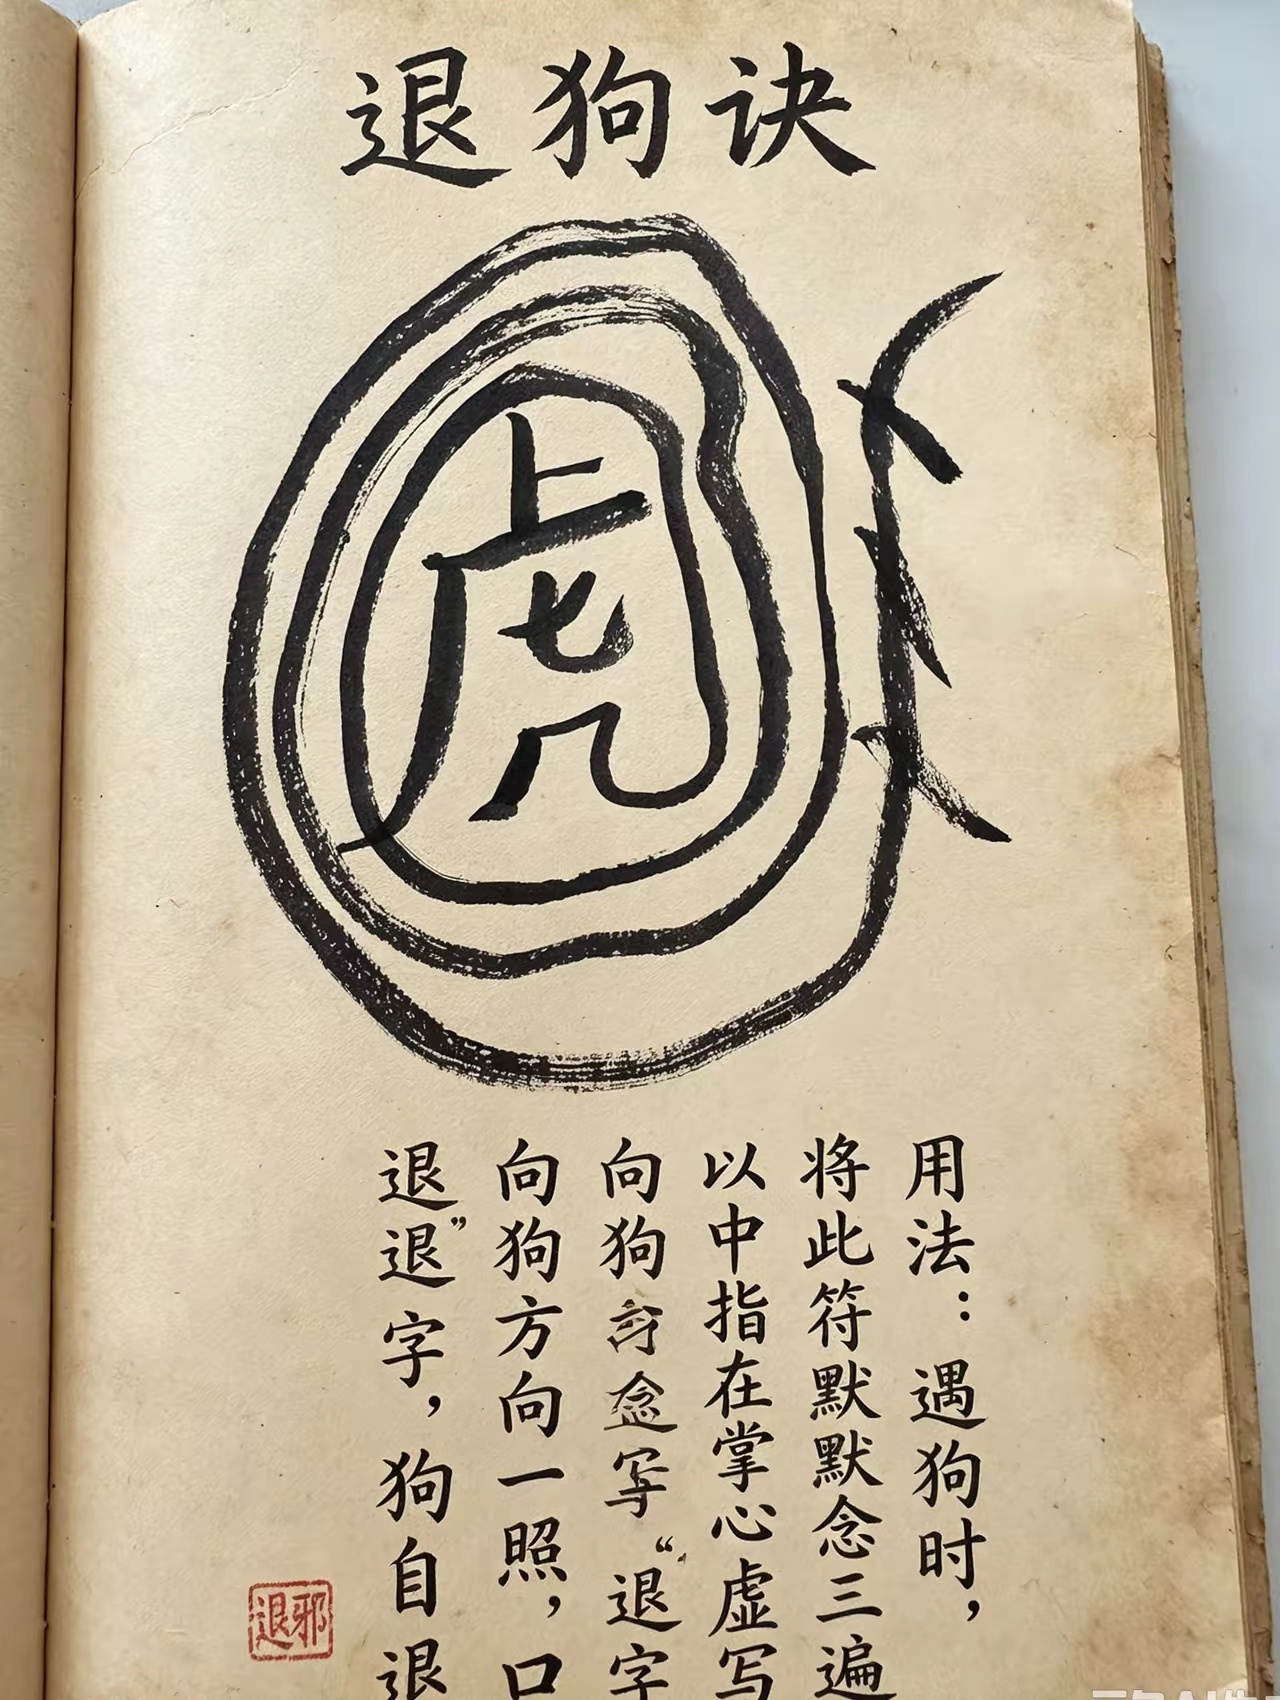 退狗诀
虎
用法：遇狗时，
将此符默默念三遍
以中指在掌心虚写
向狗念写“退字
向狗方向一照，口
退退”字，狗自退
退邪